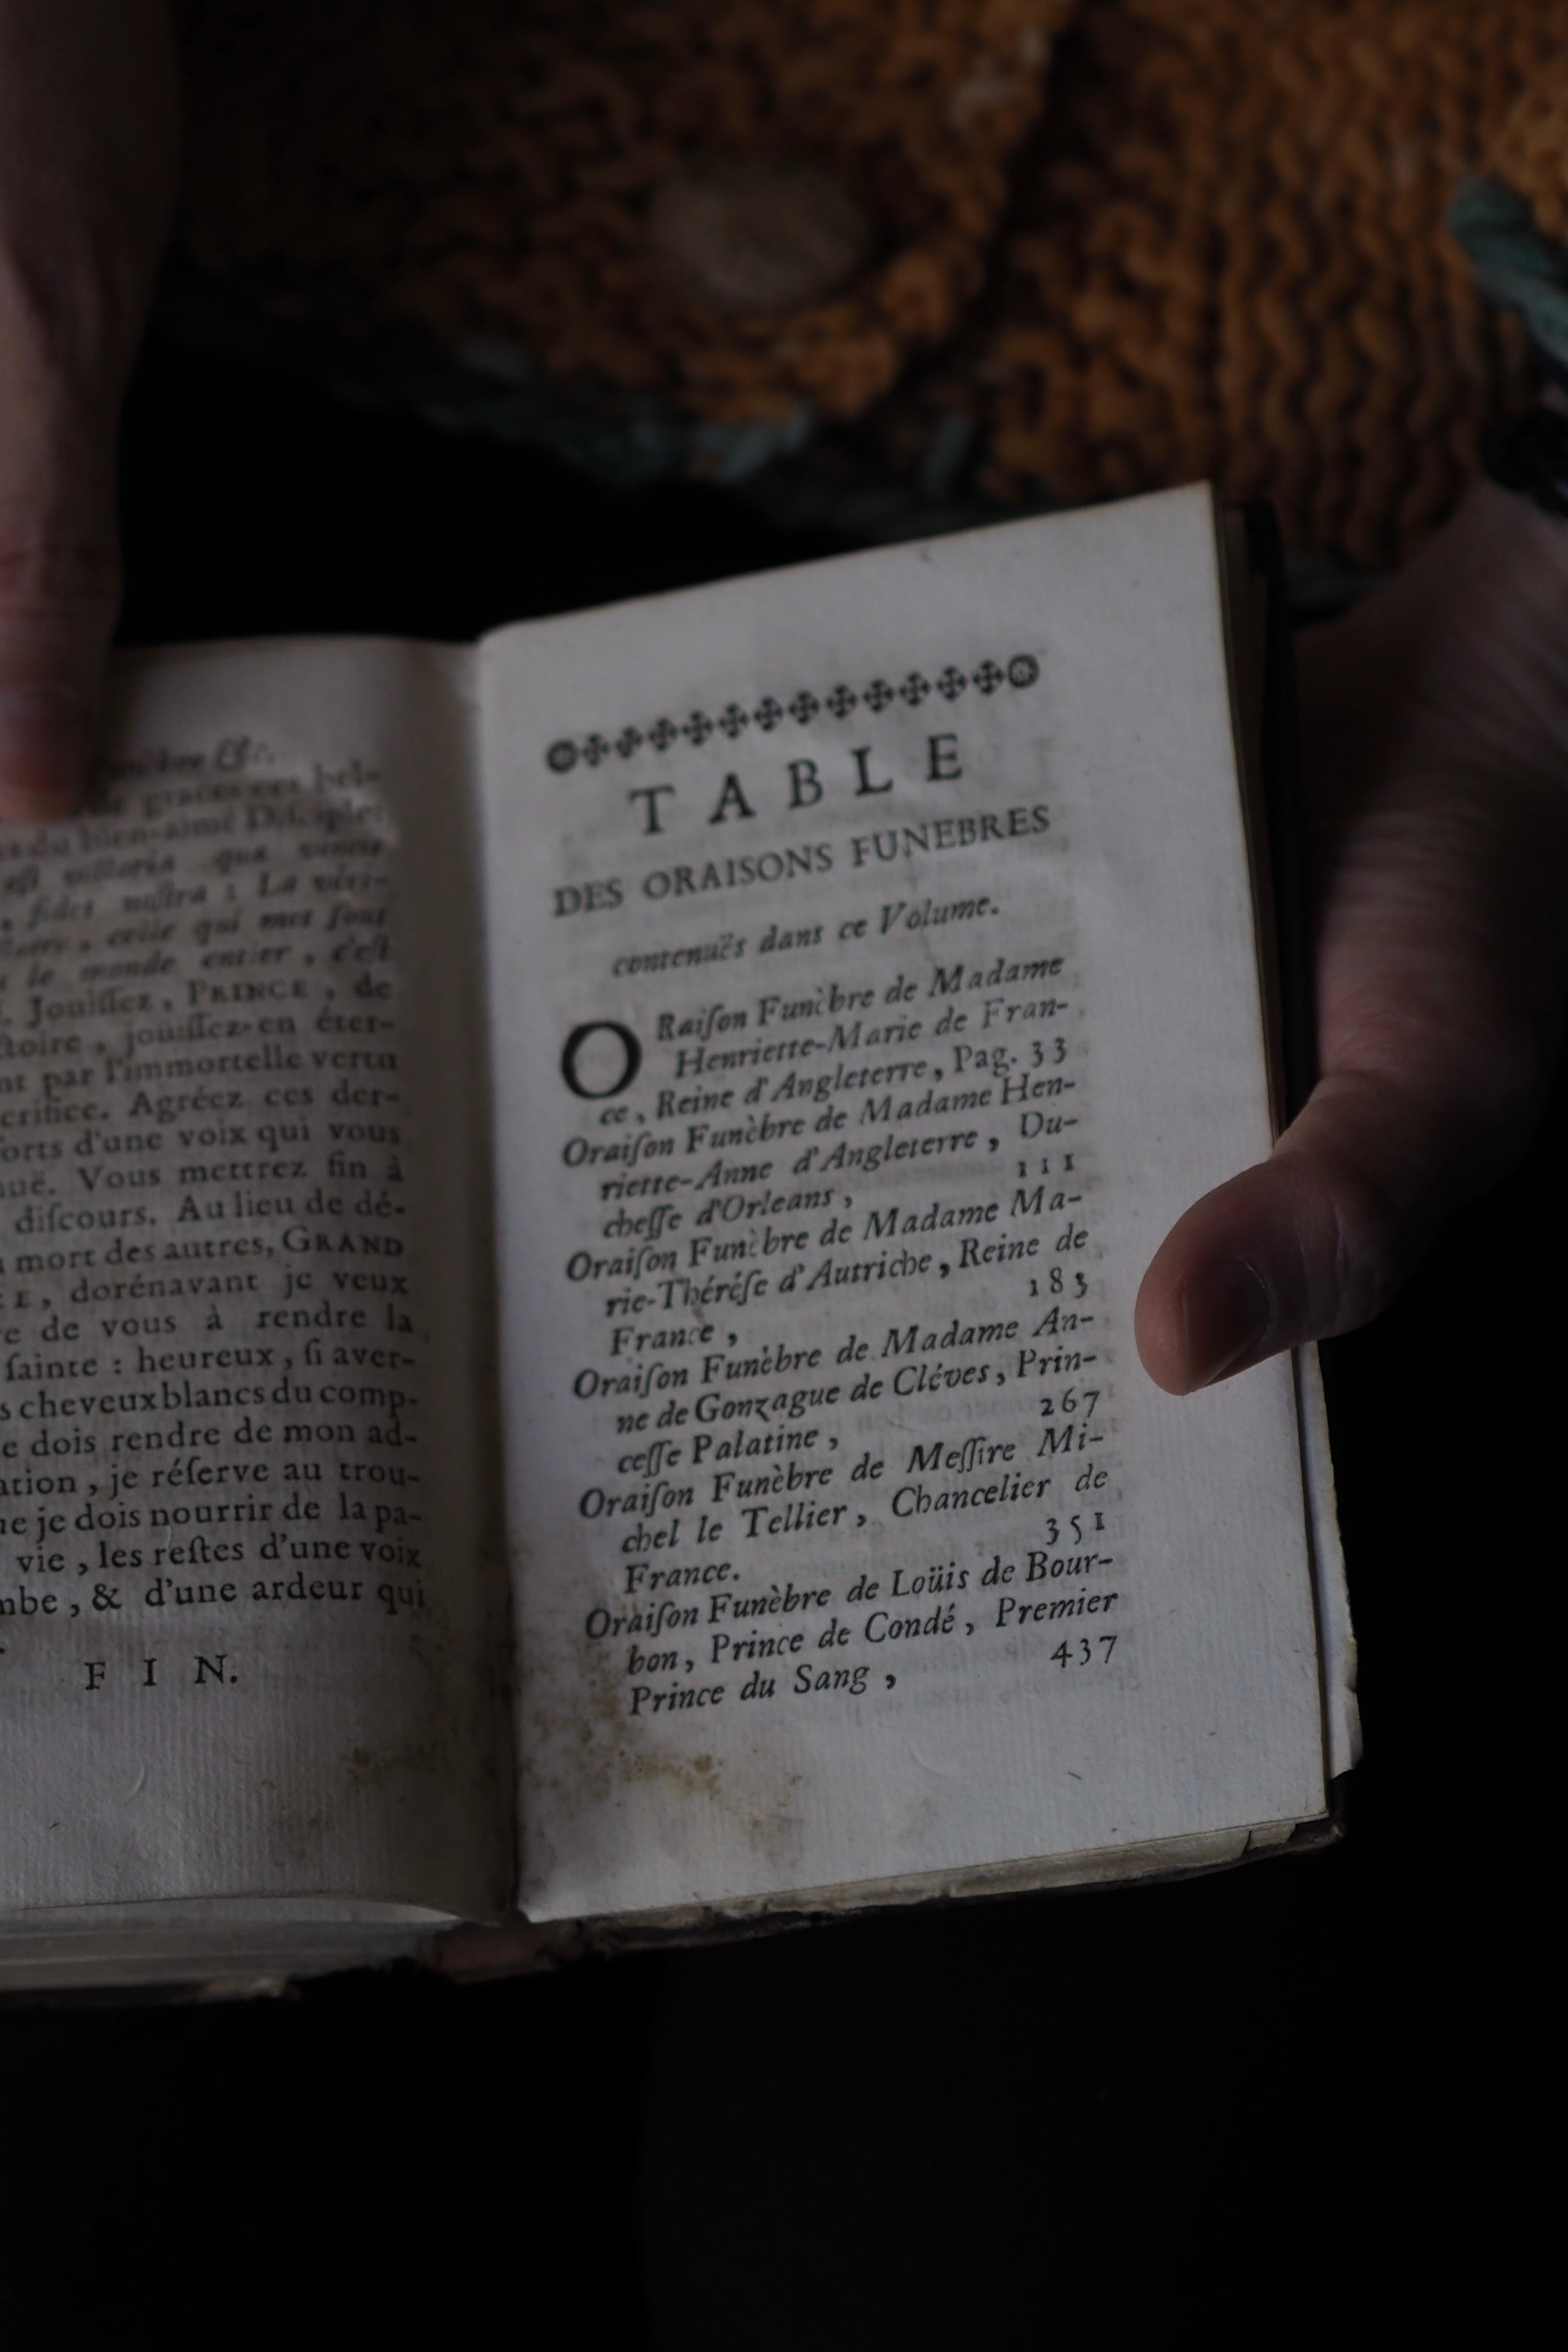 &c.
graces ces bel-
du bien-aimé Disciple:
est victoria quæ vincit
, fides nostra : La véri-
, celle qui met sous
le monde entier , c'eſt
Jouiſſez , PRINCE , de
ctoire , jouiſſez-en éter-
nt par l'immortelle vertu
crifice. Agréez ces der-
forts d'une voix qui vous
nuë. Vous mettrez fin à
diſcours. Au lieu de dé-
mort des autres, GRAND
CE, dorénavant je veux
re de vous à rendre la
ſainte : heureux, ſi aver-
s cheveux blancs du comp-
e dois rendre de mon ad-
ation , je réſerve au trou-
ue je dois nourrir de la pa-
vie , les reſtes d'une voix
mbe , & d'une ardeur qui
FIN.
TABLE
DES ORAISONS FUNEBRES
contenuës dans ce Volume.
ORaiſon Funèbre de Madame
Henriette-Marie de Fran-
ce, Reine d'Angleterre, Pag. 33
Oraiſon Funèbre de Madame Hen-
riette-Anne d'Angleterre, Du-
cheſſe d'Orleans, 111
Oraiſon Funèbre de Madame Ma-
rie-Théréſe d'Autriche, Reine de
France, 183
Oraiſon Funèbre de Madame An-
ne de Gonzague de Cléves, Prin-
ceſſe Palatine, 267
Oraiſon Funèbre de Meſſire Mi-
chel le Tellier, Chancelier de
France. 351
Oraiſon Funèbre de Loüis de Bour-
bon, Prince de Condé, Premier
Prince du Sang, 437